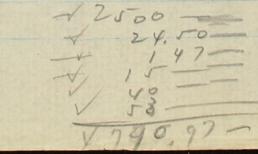 ✓ 2500 —
✓ 24.50
✓ 1 47
✓ 15 —
✓ 40 —
✓ 58 —
✓ 740.97 —